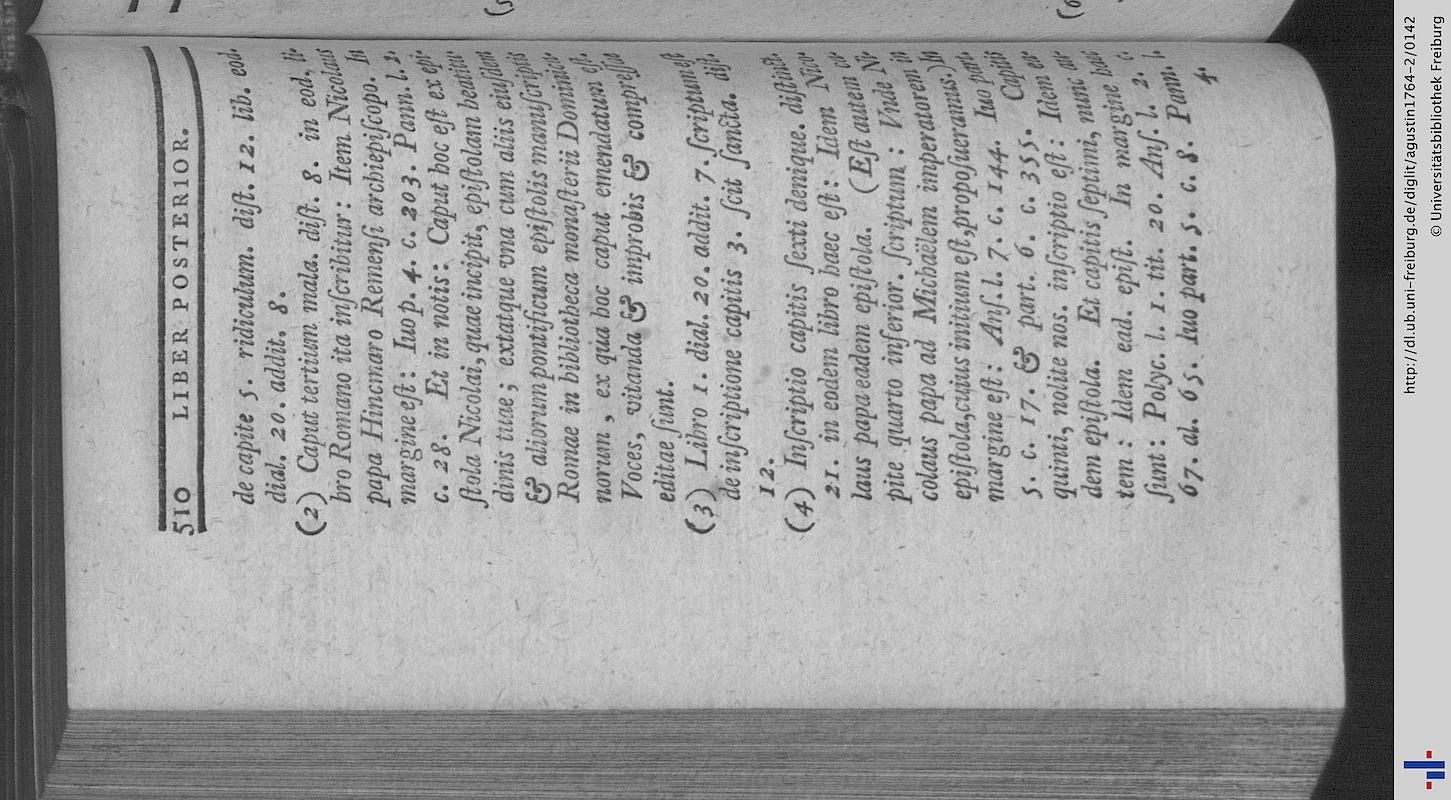 510 LIBER POSTERIOR.
de capite 5. ridiculum. diſt. 12. lib. eod.
dial. 20. addit. 8.
(2) Caput tertium mala. diſt. 8. in eod, li-
bro Romano ita inſcribitur: Item Nicolaus
papa Hincmaro Remenſi archiepiſcopo. In
margine eſt: Iuo p. 4. c. 203. Pann. l. 2.
c. 28. Et in notis: Caput hoc eſt ex epi-
ſtola Nicolai, quae incipit, epiſtolam beatitu-
dinis tuae; extatque vna cum aliis eiuſdem
& aliorum pontificum epiſtolis manuſcriptis
Romae in bibliotheca monaſterii Dominica-
norum, ex qua hoc caput emendatum eſt.
Voces, vitanda & improbis & compreſſa
editae ſunt.
(3) Libro 1. dial. 20. addit. 7. ſcriptum eſt
de inſcriptione capitis 3. ſcit ſancta. diſt.
12.
(4) Inſcriptio capitis ſexti denique. diſtinct.
21. in eodem libro haec eſt: Idem Nico-
laus papa eadem epiſtola. (Eſt autem ca-
pite quarto inferior. ſcriptum: Vnde Ni-
colaus papa ad Michaëlem imperatorem in
epiſtola, cujus initium eſt, propoſueramus.) In
margine eſt: Anſ. l. 7. c. 144. Iuo part.
5. c. 17. & part. 6. c. 355. Capitis
quinti, nolite nos. inſcriptio eſt: Idem ea-
dem epiſtola. Et capitis ſeptimi, nunc au-
tem: Idem ead. epiſt. In margine haec
ſunt: Polyc. l. 1. tit. 20. Anſ. l. 2. c.
67. al. 65. Iuo part. 5. c. 8. Pann. l.
4.
http://dl.ub.uni-freiburg.de/diglit/agustin1764-2/0142
© Universitätsbibliothek Freiburg